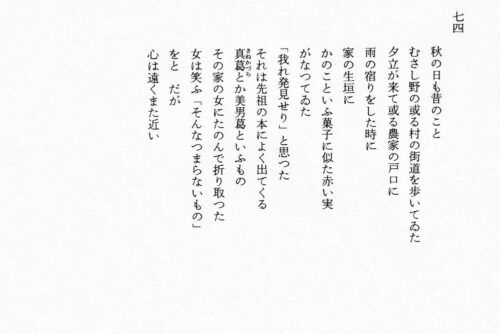 七四
秋の日も昔のこと
むさし野の或る村の街道を歩いてゐた
夕立が来て或る農家の戸口に
雨の宿りをした時に
家の生垣に
かのこといふ菓子に似た赤い実
がなつてゐた
「我れ発見せり」と思つた
それは先祖の本によく出てくる
真葛とか美男葛といふもの
さねかづら
その家の女にたのんで折り取つた
女は笑ふ「そんなつまらないもの」
をと　だが
心は遠くまた近い